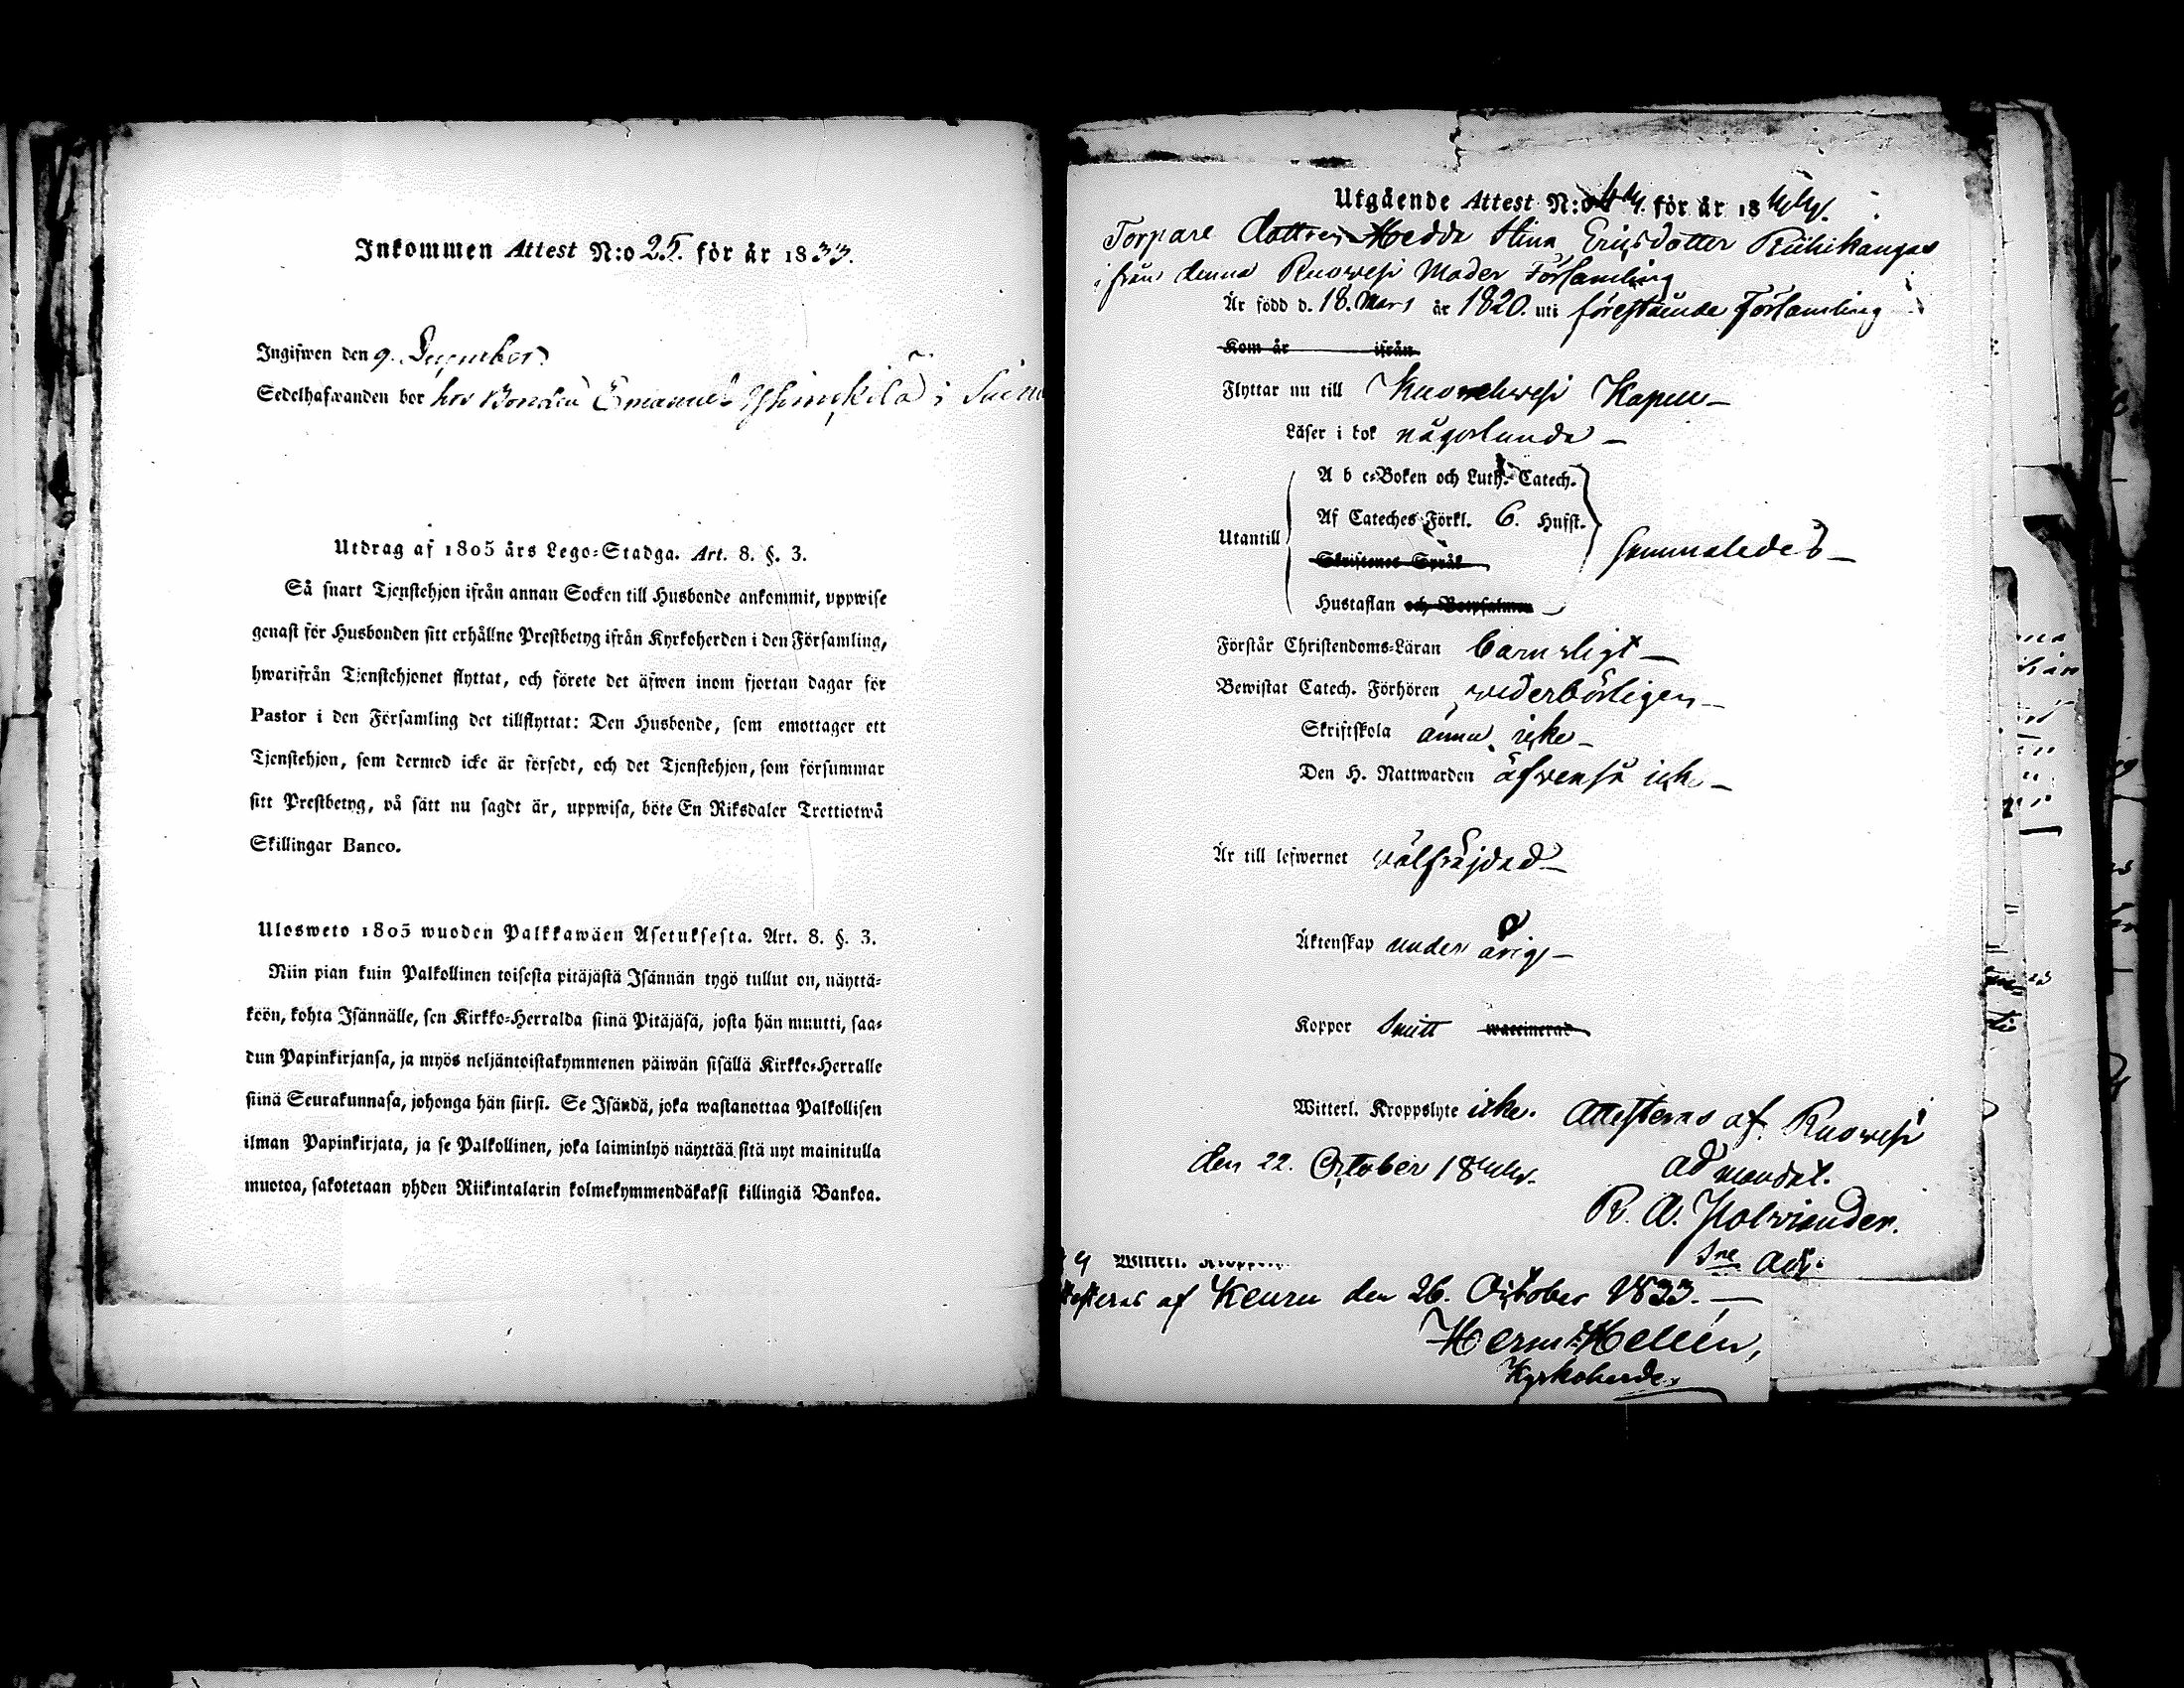 Inkommen Attest N:o 25. för år 1833.
Ingifwen den 9. December
Sedelhafwanden bor hos Bonden Emanuel i
Utdrag af 1805 års Lego-Stadga. Art. 8. §. 3.
Så snart Tjenstehjon ifrån annan Socken till Husbonde ankommit, uppwise
genast för Husbonden sitt erhållne Prestbetyg ifrån Kyrkoherden i den Församling,
hwarifrån Tjenstehjonet flyttat, och förete det äfwen inom fjortan dagar för
Pastor i den Församling det tillflyttat: Den Husbonde, som emottager ett
Tjenstehjon, som dermed icke är försedt, och det Tjenstehjon, som försummar
sitt Prestbetyg, på sätt nu sagdt är, uppwisa, böte En Riksdaler Trettiotwå
Skillingar Banco.
Ulosweto 1805 wuoden Palkkawäen Asetuksesta. Art. 8. §. 3.
Niin pian kuin Palkollinen toisesta pitäjästä Isännän tygö tullut on, näyttä-
köön, kohta Isännälle, sen Kirkko-Herralda siinä Pitäjäsä, josta hän muutti, saa-
dun Papinkirjansa, ja myös neljäntoistakymmenen päiwän sisällä Kirkko-Herralle
siinä Seurakunnasa, johonga hän siirsi. Se Isändä, joka wastanottaa Palkollisen
ilman Papinkirjata, ja se Palkollinen, joka laiminlyö näyttää sitä nyt mainitulla
muotoa, sakotetaan yhden Riikintalarin kolmekymmendäkaksi killingiä Bankoa.
Utgående Attest N:o 44. för år 1844.
Torpare dottren Hedda Stina Ericsdotter Riihikangas
ifrån denna Ruowesi Moder Församling
Är född d. 18. Mars år 1820. uti förestående Församling
Kom år ifrån
Flyttar nu till Kuorehwesi Kapell
Läser i bok någorlunda
A b c-Boken och Luth. Catech.
Af Cateches Förkl. 6. Hufst.
Utantill
Skriftenes Språk
sammaledes
Hustaflan och Botpsalmen
Förstår Christendoms-Läran barnsligt
Bewistat Catech. Förhören wederbörligen
Skriftskola ännu icke
Den H. Nattwarden äfwenså icke
Är till lefwernet välfräjdad
Äktenskap under årig
Koppor haft waccinerad
Witterl. Kroppslyte icke. Attesteras af Ruowesi
den 22. October 1844. ad mandat.
R. A. Holviander.
Sne Adj.
Witterl. Kropps
Attesteras af Keuru den 26. October 1833.
Herm: Hellén,
Kyrkoherde